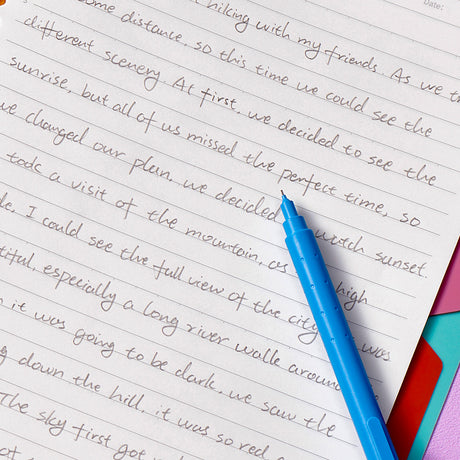 Date:
hiking with my friends. As we tr
ome distance, so this time we could see the
different scenery. At first, we decided to see the
sunrise, but all of us missed the perfect time, so
we changed our plan, we decided watch sunset.
took a visit of the mountain, as high
le, I could see the full view of the city was
tiful, especially a long river walk around
n it was going to be dark, we saw the
g down the hill, it was so red
The sky first got